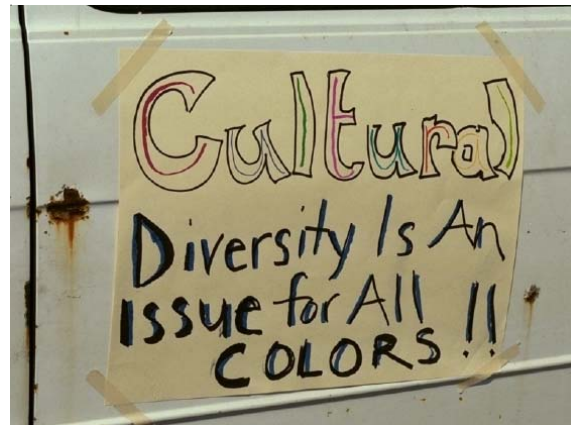 Cultural
Diversity Is An
Issue for All
COLORS !!